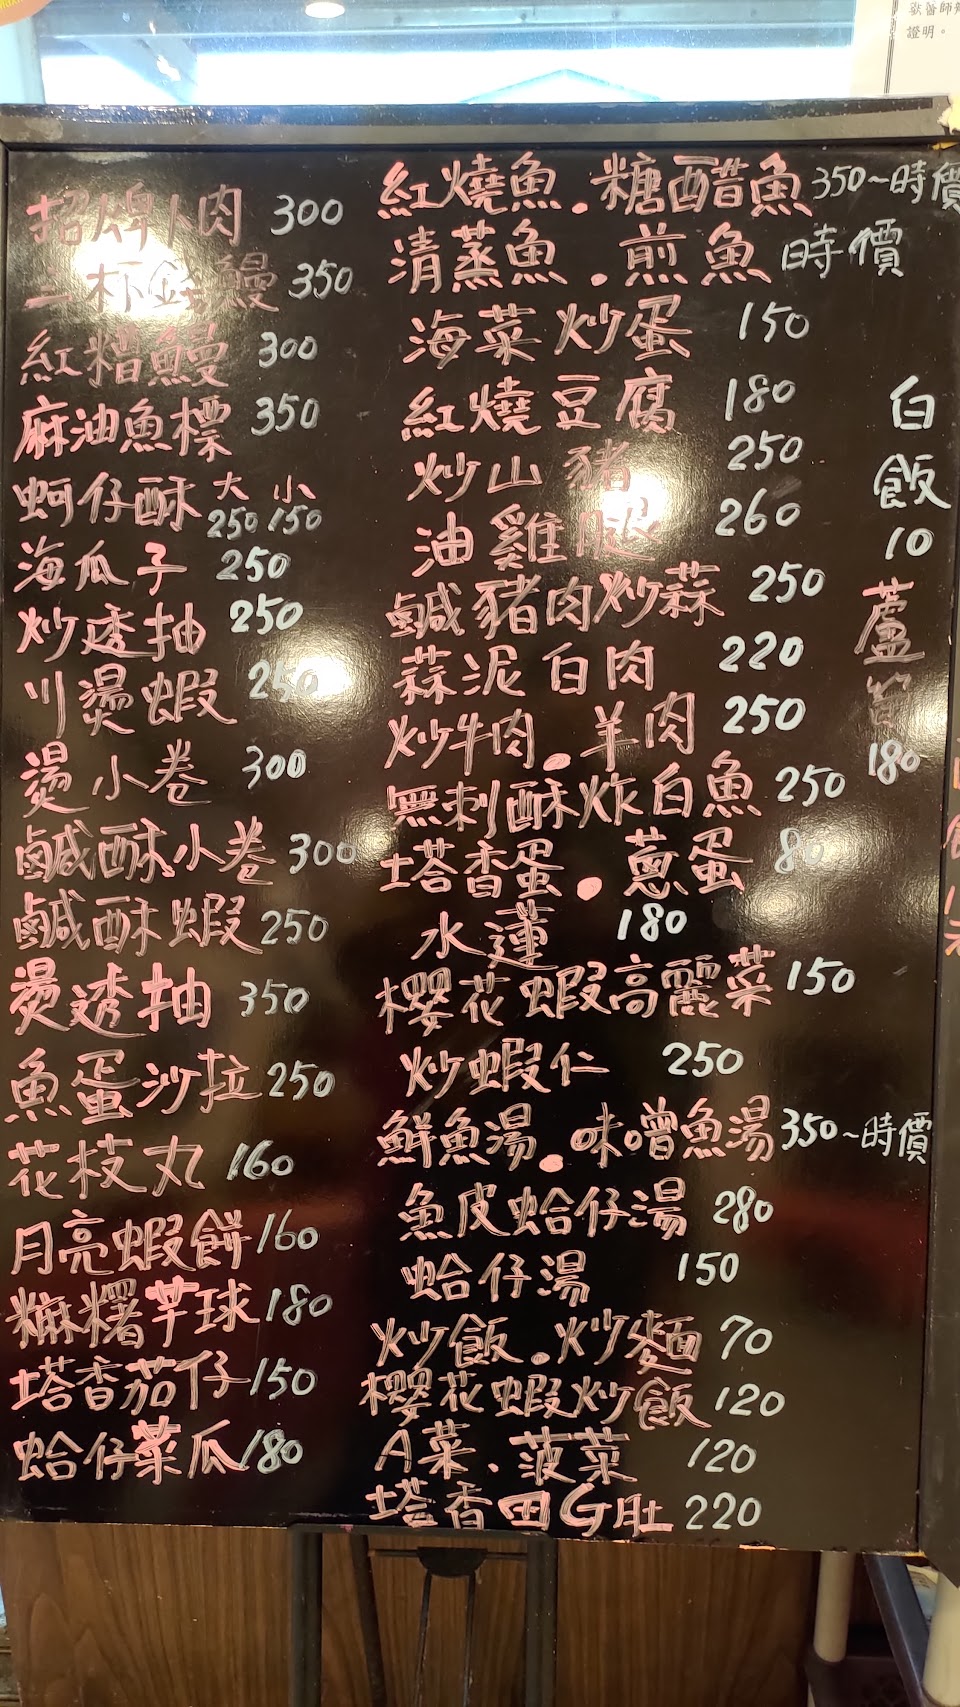 獸醫師
證明。
招牌卜肉 300
三杯鮮鰻 350
紅糟鰻 300
麻油魚標 350
蚵仔酥 大 小
250 150
海瓜子 250
炒透抽 250
川燙蝦 250
燙小卷 300
鹹酥小卷 300
鹹酥蝦 250
燙透抽 350
魚蛋沙拉 250
花枝丸 160
月亮蝦餅 160
麻糬芋球 180
塔香茄仔 150
蛤仔菜瓜 180
紅燒魚.糖醋魚 350~時價
清蒸魚.煎魚 時價
海菜炒蛋 150
紅燒豆腐 180
炒山豬 250
油雞腿 260
鹹豬肉炒蒜 250
蒜泥白肉 220
炒牛肉.羊肉 250
無刺酥炸白魚 250
塔香蛋.蔥蛋 80
水蓮 180
櫻花蝦高麗菜 150
炒蝦仁 250
鮮魚湯.味噌魚湯 350~時價
魚皮蛤仔湯 280
蛤仔湯 150
炒飯.炒麵 70
櫻花蝦炒飯 120
A菜.菠菜 120
塔香田G肚 220
白飯
10
蘆筍
180